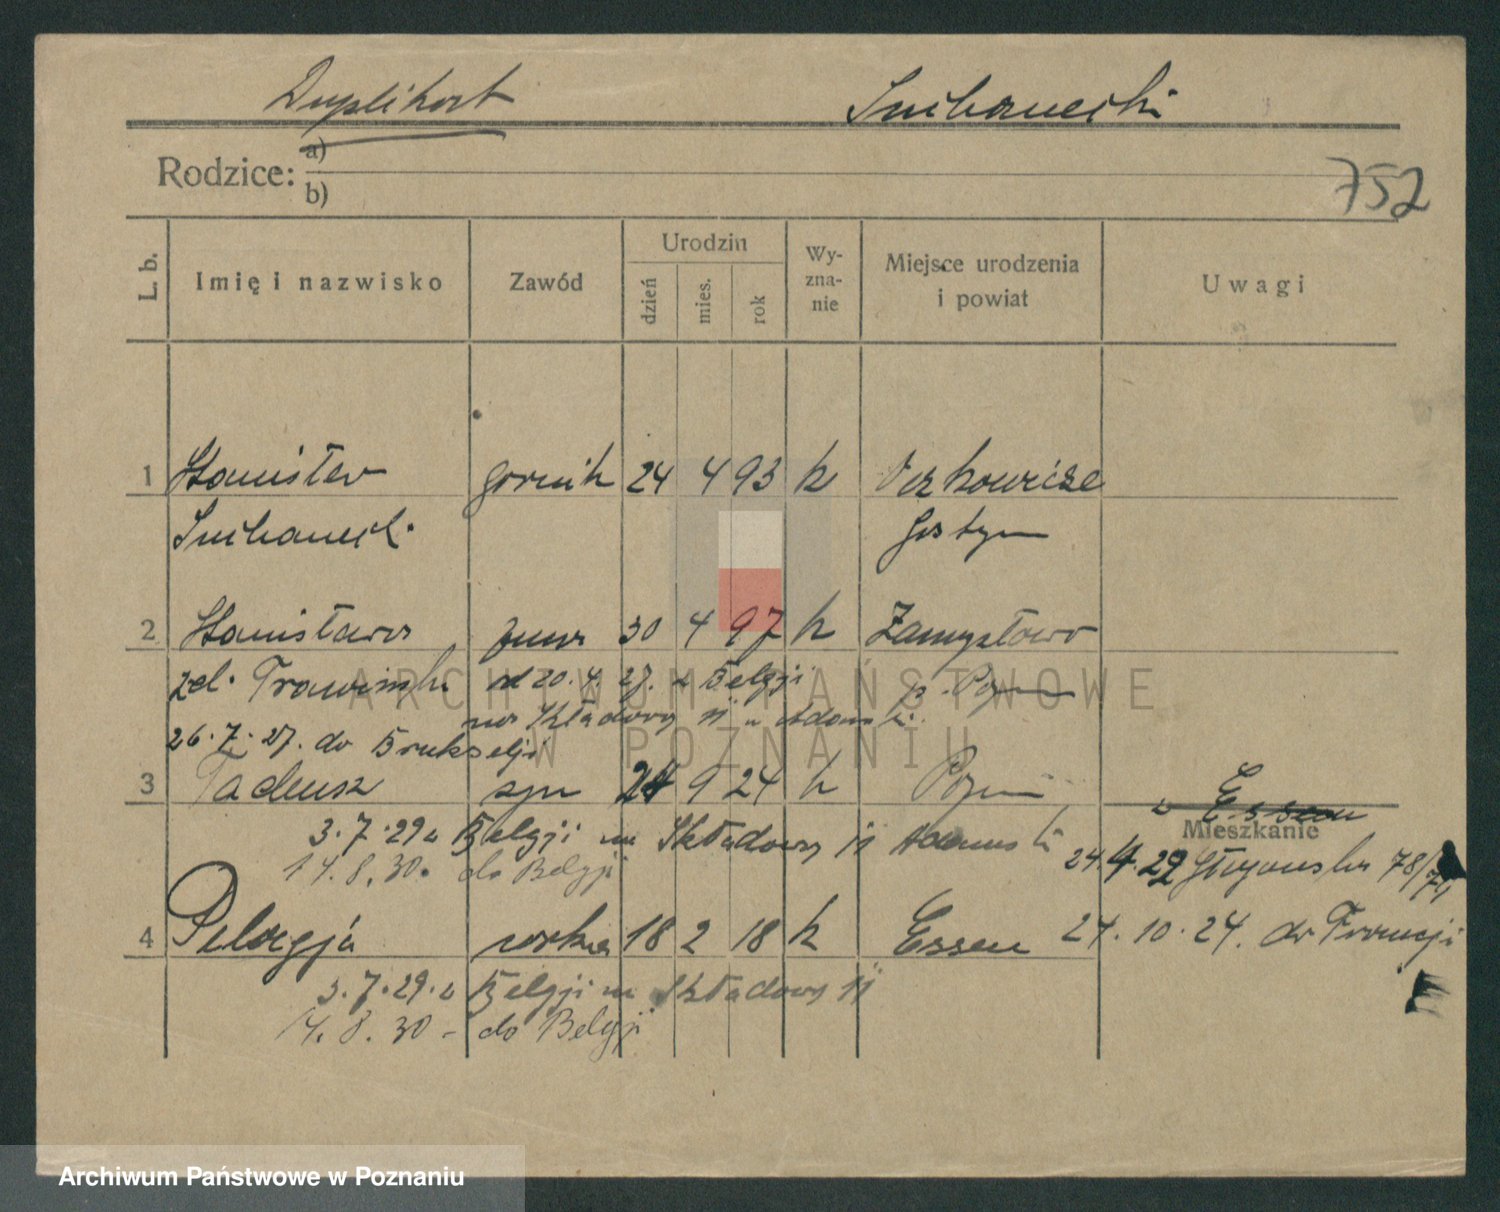 Duplikat Suchanecki
Rodzice: a)
b)
752
L. b. Imię i nazwisko Zawód Urodzin dzień mies. rok Wy-zna-nie Miejsce urodzenia i powiat Uwagi
1 Stanisław górnik 24 4 93 k
Suchanecki Gostyn
2 Stanisława żona 30 4 97 k Zamysłowo
od 20.4.27. z Belgji p. Pozn
na Składową 11 u Adamski
26.7.27. do Brukselji
3 Tadeusz syn 24 9 24 k Pozn
z Essen
Mieszkanie
3.7.29 z Belgji na Składową 11 Adamski
24.4.22 78/79
14.8.30. do Belgji
4 Pelagja córka 18 2 18 k Essen 24.10.24. do Francji
3.7.29. z Belgji na Składową 11
14.8.30 - do Belgji
ARCHIWUM PAŃSTWOWE
W POZNANIU
Archiwum Państwowe w Poznaniu